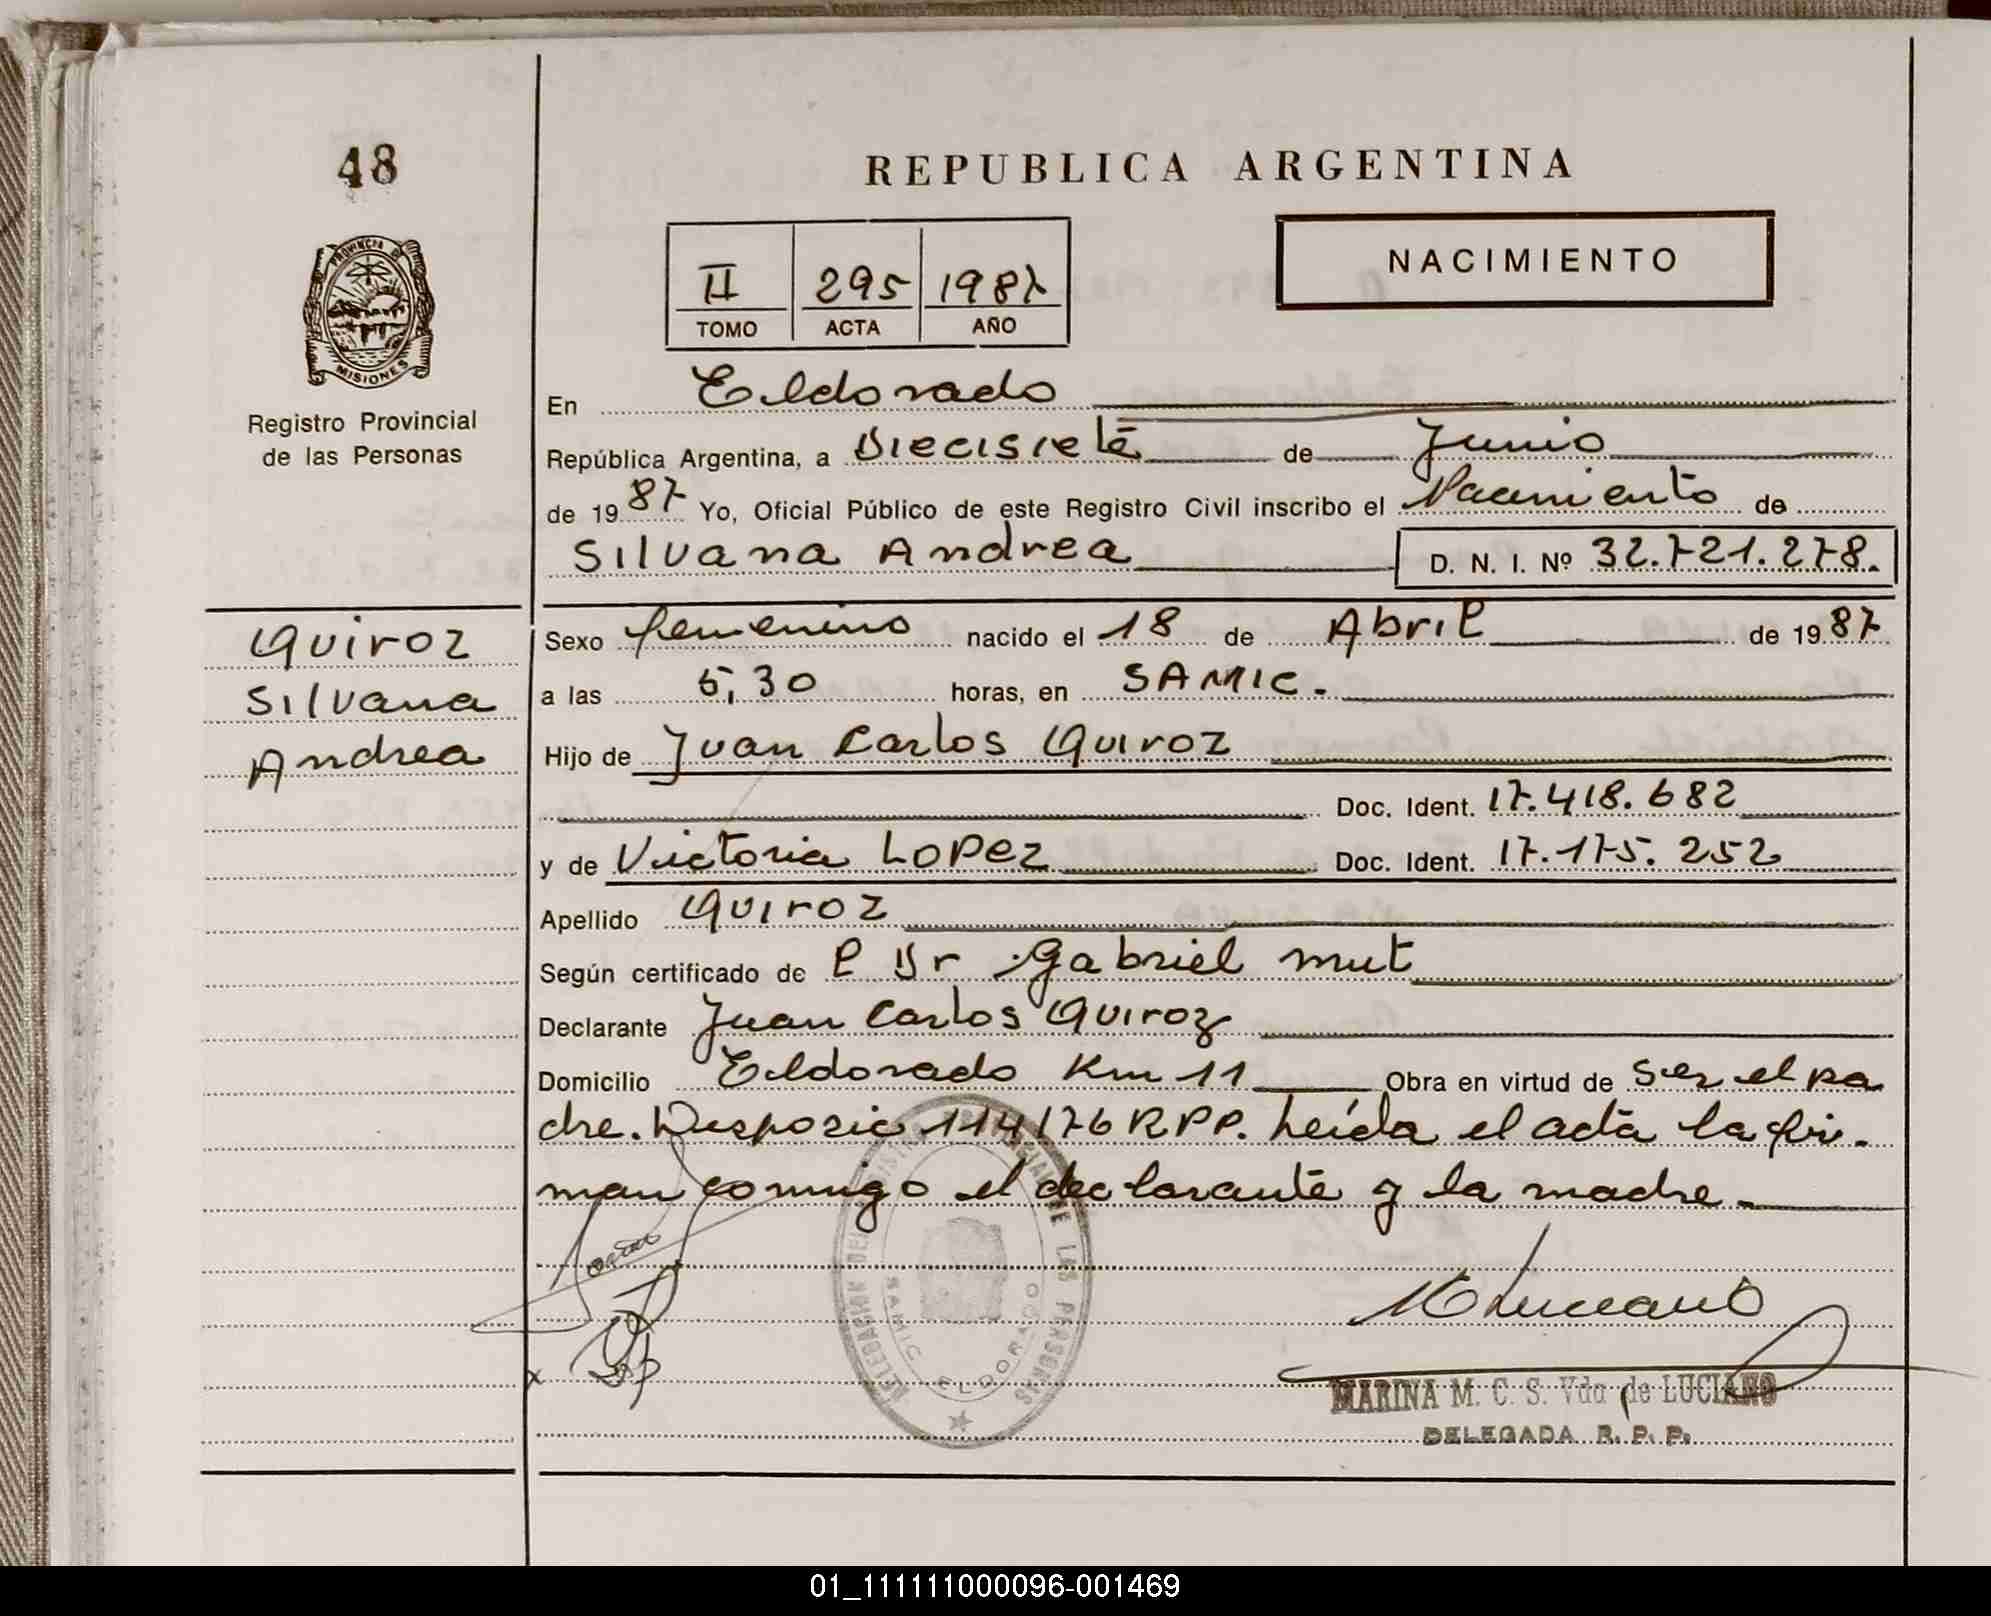 48
REPUBLICA ARGENTINA
NACIMIENTO
II 295 1987
TOMO ACTA AÑO
PROVINCIA D
MISIONES
Registro Provincial
de las Personas
En Eldorado
República Argentina, a Diecisiete de Junio
de 1987 Yo, Oficial Público de este Registro Civil inscribo el Nacimiento de
Silvana Andrea D. N. I. Nº 32.721.278.
Quiroz
Silvana
Andrea
Sexo femenino nacido el 18 de Abril de 1987
a las 5,30 horas, en SAMIC.
Hijo de Juan Carlos Quiroz
Doc. Ident. 17.418.682
y de Victoria Lopez Doc. Ident. 17.175.252
Apellido Quiroz
Según certificado de Dr Gabriel mut
Declarante Juan Carlos Quiroz
Domicilio Eldorado Km 11 Obra en virtud de ser el pa
dre. Disposic 114/76 RPP. Leída el acta la fir-
man comigo el declarante y la madre
DELEGACION DEL REGISTRO PROVINCIAL DE LAS PERSONAS
SAMIC ELDORADO
MLuciano
MARINA M. C. S. Vda de LUCIANO
DELEGADA R. P. P.
01_111111000096-001469